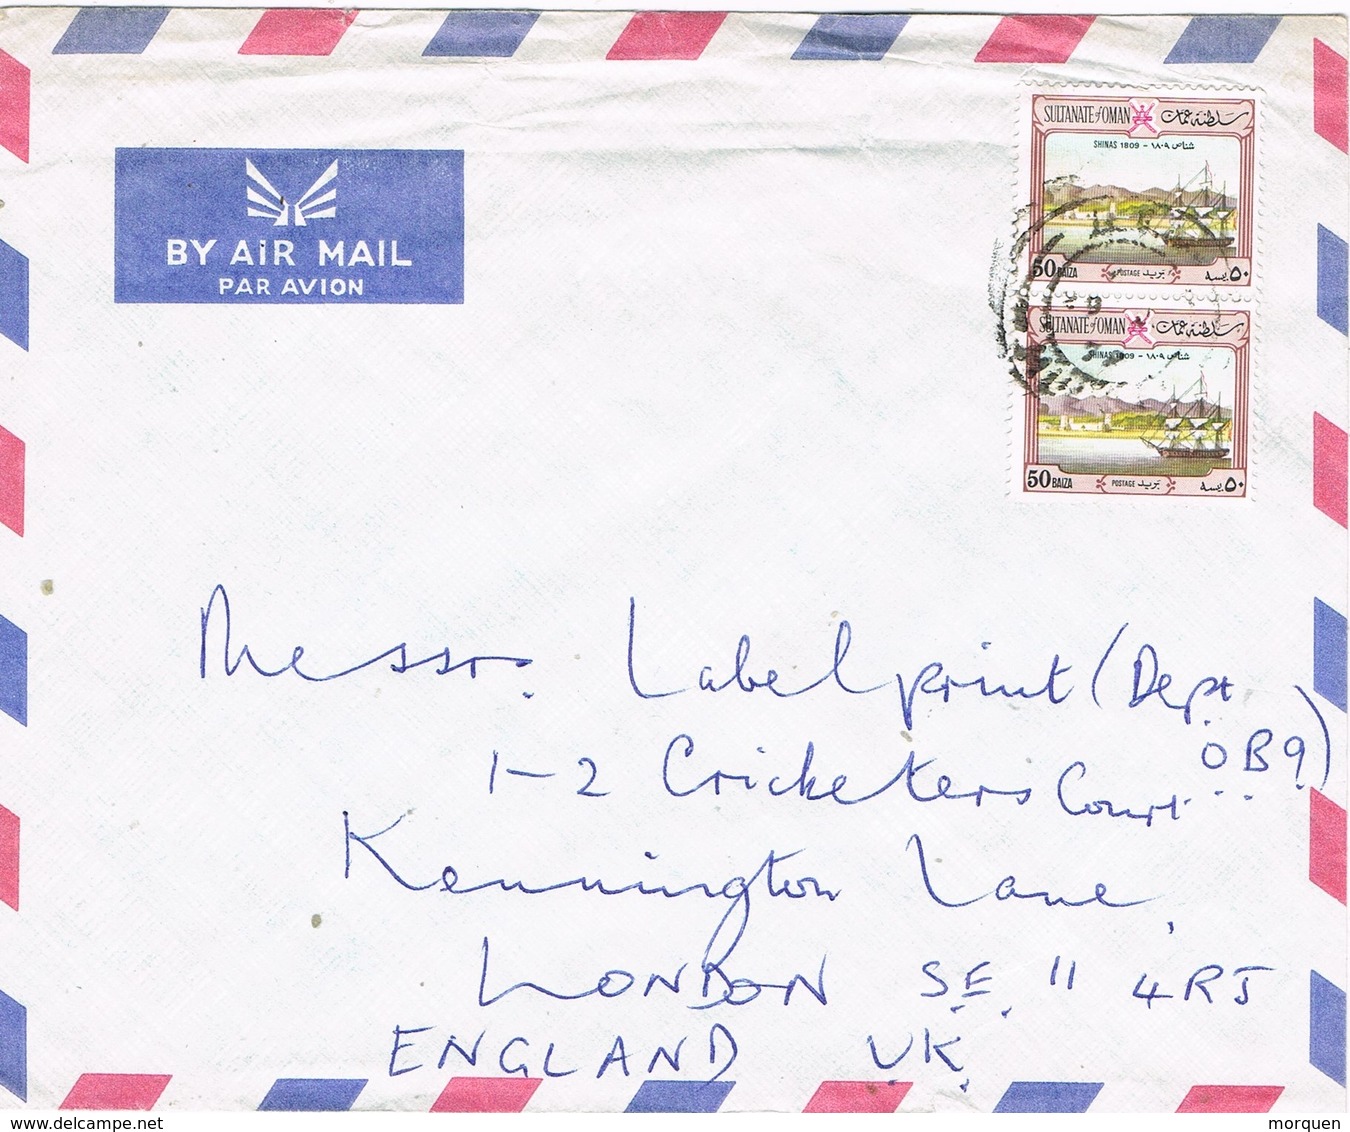 BY AIR MAIL
PAR AVION
SULTANATE of OMAN سلطنة عمان
SHINAS 1809 - شناص ١٨٠٩
50 BAIZA POSTAGE بريد ٥٠ بيسه
SULTANATE of OMAN سلطنة عمان
SHINAS 1809 - شناص ١٨٠٩
50 BAIZA POSTAGE بريد ٥٠ بيسه
Messrs. Labelprint (Dept
OB9)
1-2 Cricketers Court
Kennington Lane,
LONDON SE 11 4RJ
ENGLAND UK
www.delcampe.net
morquen